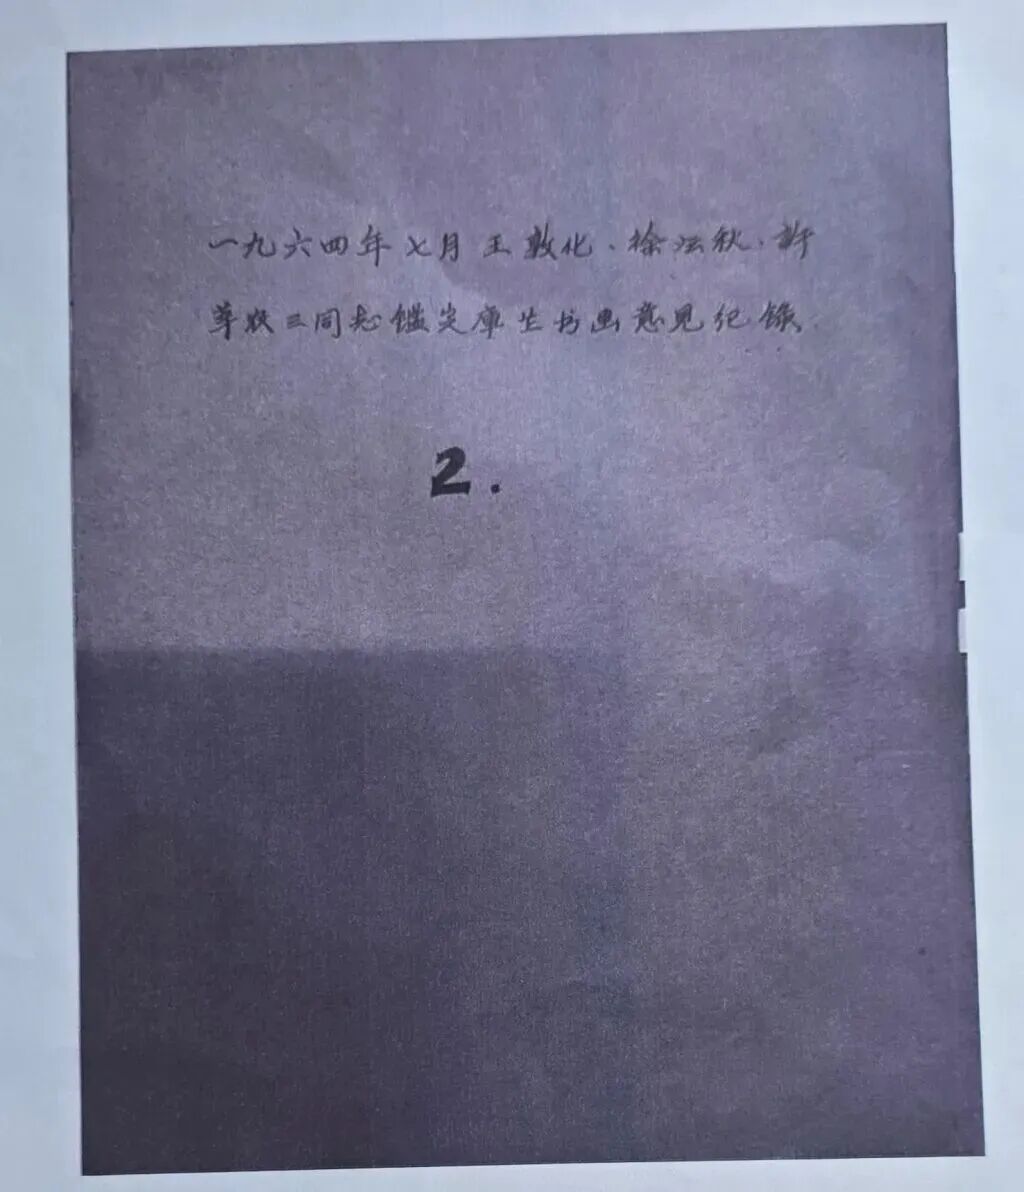 一九六四年七月王敦化、徐沄秋、許
莘农三同志鑑定庫书画意见纪錄
2.